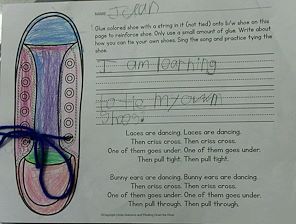 Glue colored shoe with a string in it (not tied) onto b/w shoe on
this page to reinforce shoe. Only use a small amount of glue. Write about
how you can tie your own shoes. Sing the song and practice tying the
shoe.
I am learning
to tie my own
shoes.
Laces are dancing. Laces are dancing.
Then criss cross. Then criss cross.
One of them goes under. One of them goes under.
Then pull tight. Then pull tight.
Bunny ears are dancing. Bunny ears are dancing.
Then criss cross. Then criss cross.
One of them goes under. One of them goes under.
Then pull through. Then pull through.